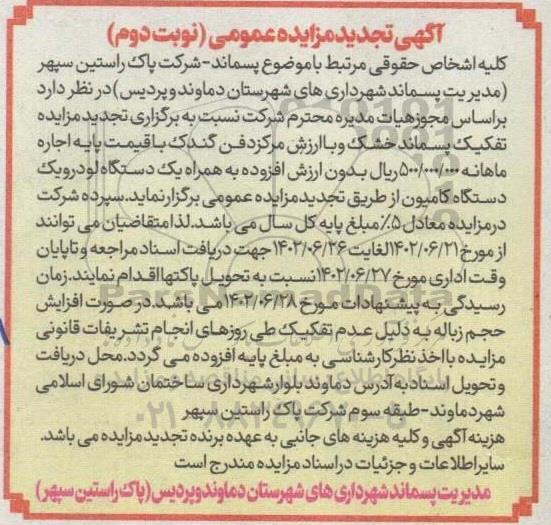 آگهی تجدید مزایده عمومی (نوبت دوم)
کلیه اشخاص حقوقی مرتبط با موضوع پسماند-شرکت پاک راستین سپهر
(مدیریت پسماند شهرداری های شهرستان دماوند و پردیس) در نظر دارد
براساس مجوز هیات مدیره محترم شرکت نسبت به برگزاری تجدید مزایده
تفکیک پسماند خشک و با ارزش مرکز دفن گندک با قیمت پایه اجاره
ماهانه ۵۰۰/۰۰۰/۰۰۰ ریال بدون ارزش افزوده به همراه یک دستگاه لودر و یک
دستگاه کامیون از طریق تجدید مزایده عمومی برگزار نماید. سپرده شرکت
در مزایده معادل ۵٪ مبلغ پایه کل سال می باشد. لذا متقاضیان می توانند
از مورخ ۱۴۰۲/۰۶/۲۱ لغایت ۱۴۰۲/۰۶/۲۶ جهت دریافت اسناد مراجعه و تا پایان
وقت اداری مورخ ۱۴۰۲/۰۶/۲۷ نسبت به تحویل پاکتها اقدام نمایند. زمان
رسیدگی به پیشنهادات مورخ ۱۴۰۲/۰۶/۲۸ می باشد. در صورت افزایش
حجم زباله به دلیل عدم تفکیک طی روزهای انجام تشریفات قانونی
مزایده با اخذ نظر کارشناسی به مبلغ پایه افزوده می گردد. محل دریافت
و تحویل اسناد به آدرس دماوند بلوار شهرداری ساختمان شورای اسلامی
شهر دماوند-طبقه سوم شرکت پاک راستین سپهر
هزینه آگهی و کلیه هزینه های جانبی به عهده برنده تجدید مزایده می باشد.
سایر اطلاعات و جزئیات در اسناد مزایده مندرج است
مدیریت پسماند شهرداری های شهرستان دماوند و پردیس (پاک راستین سپهر)